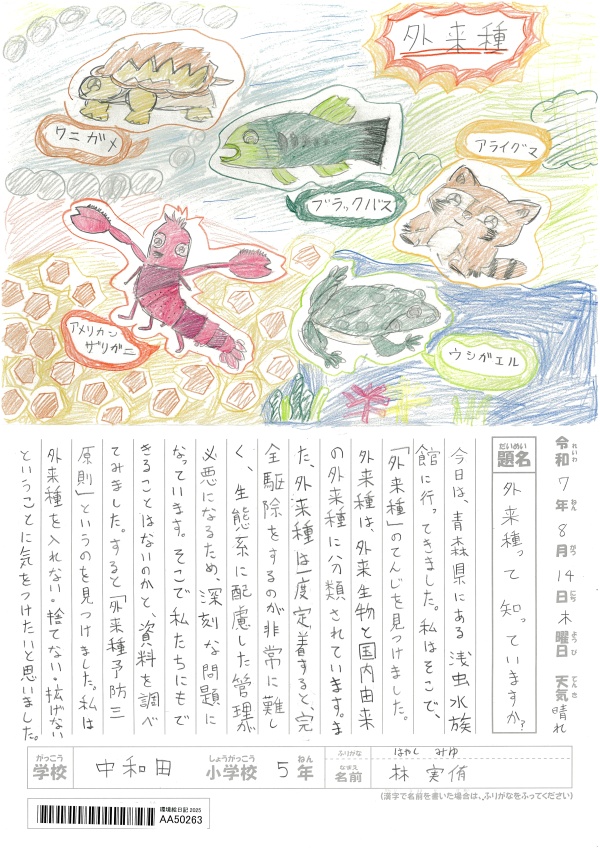 外来種
ワニガメ
ブラックバス
アライグマ
アメリカン
ザリガニ
ウシガエル
令和7年8月14日木曜日 天気晴れ
れいわ ねん がつ にち ようび てんき
だいめい
題名
外来種って知っていますか？
今日は、青森県にある浅虫水族
館に行ってきました。私はそこで、
「外来種」のてんじを見つけました。
外来種は、外来生物と国内由来
の外来種に分類されています。ま
た、外来種は一度定着すると、完
全駆除をするのが非常に難し
く、生態系に配慮した管理が
必悪になるため、深刻な問題に
なっています。そこで私たちにもで
きることはないのかと、資料を調べ
てみました。すると「外来種予防三
原則」というのを見つけました。私は
外来種を入れない・捨てない・拡げない
ということに気をつけたいと思いました。
がっこう しょうがっこう ねん
学校 中和田 小学校 5年
ふりがな はやし みゆ
なまえ
名前 林 実侑
(漢字で名前を書いた場合は、ふりがなをふってください)
環境絵日記 2025
AA50263